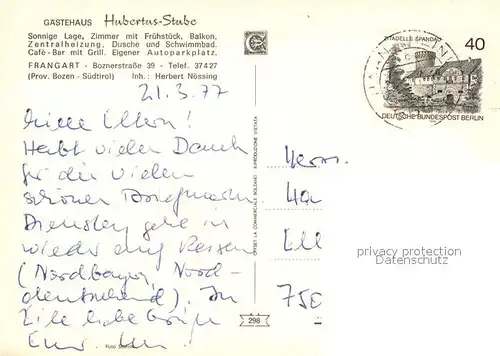 GÄSTEHAUS Hubertus-Stube
Sonnige Lage, Zimmer mit Frühstück, Balkon,
Zentralheizung, Dusche und Schwimmbad.
Café - Bar mit Grill. Eigener Autoparkplatz.
FRANGART - Boznerstraße 39 - Telef. 37427
(Prov. Bozen - Südtirol) Inh.: Herbert Nössing
21.3.77
Liebe Eltern!
Habt vielen Dank
für die vielen
schönen Briefmarken
Dienstag gehe in
wieder auf Reisen
(Nordbayern, Nord-
deutschland). In
Eile liebe Grüße
Euer
Foto
OFFSET LA COMMERCIALE BOLZANO
RIPRODUZIONE VIETATA
298
ZITADELLE SPANDAU
40
DEUTSCHE BUNDESPOST BERLIN
Herrn
Ha
Ell
privacy protection
Datenschutz